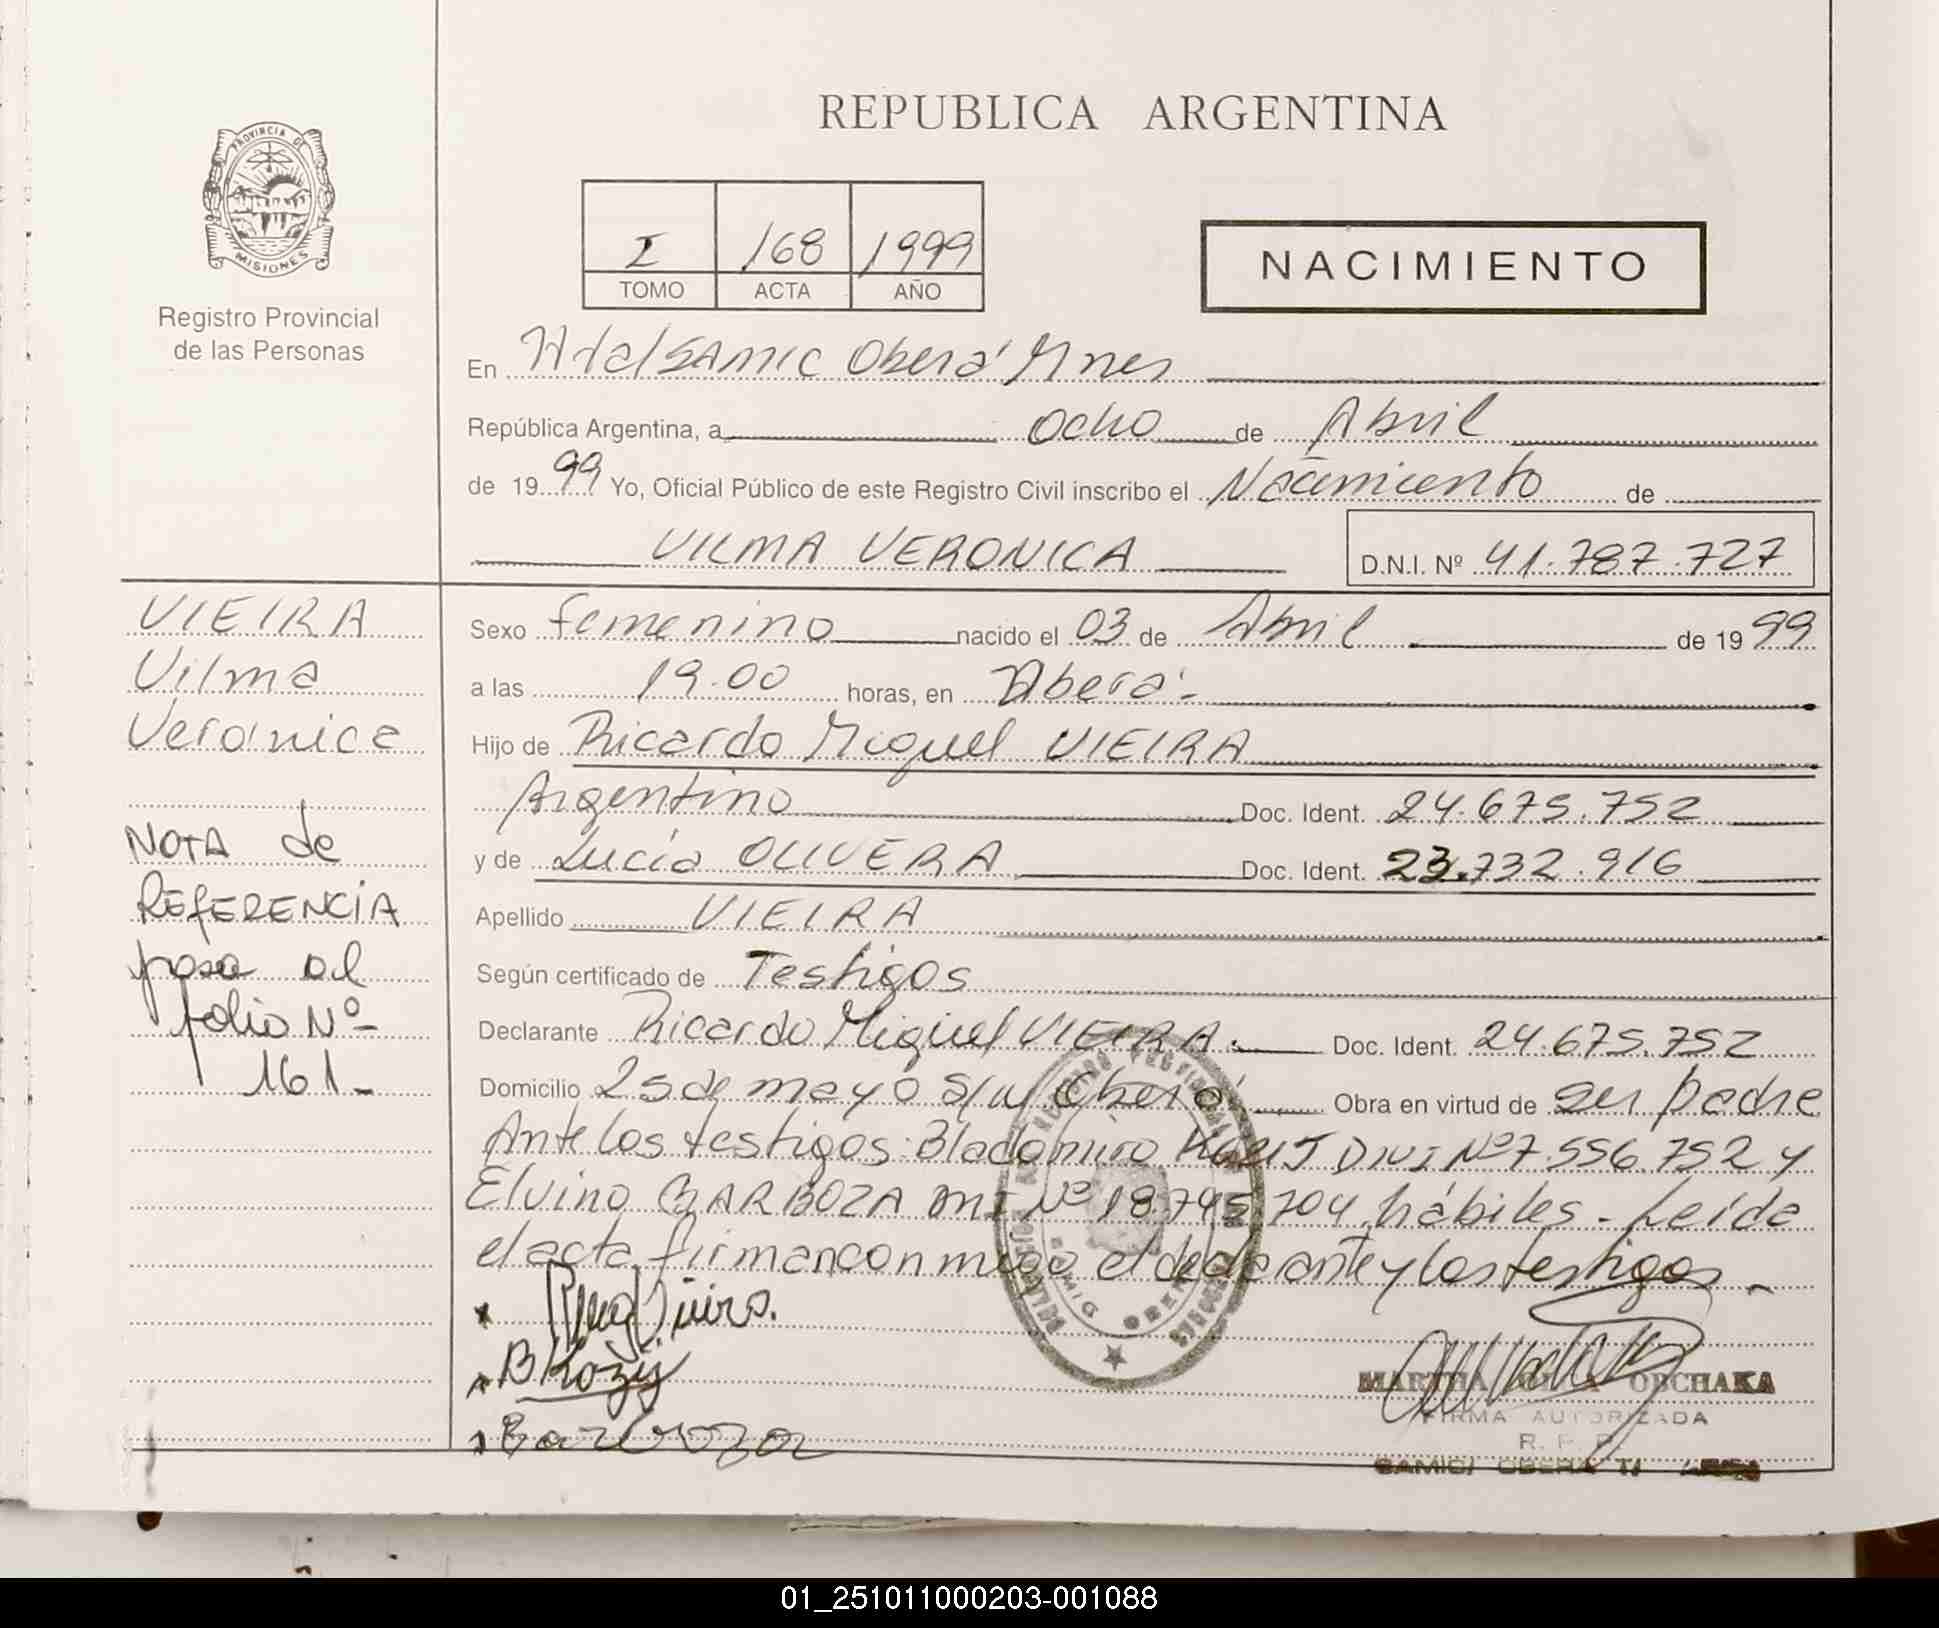 REPUBLICA ARGENTINA
PROVINCIA DE
MISIONES
Registro Provincial
de las Personas
I 168 1999
TOMO ACTA AÑO
NACIMIENTO
En Htal SAMIC Oberá Mnes
República Argentina, a Ocho de Abril
de 1999 Yo, Oficial Público de este Registro Civil inscribo el Nacimiento de
VILMA VERONICA D.N.I. Nº 41.787.727
VIEIRA
Vilma
Veronica
NOTA de
REFERENCIA
pasa al
folio Nº
161.-
Sexo femenino nacido el 03 de Abril de 1999
a las 19.00 horas, en Oberá.-
Hijo de Ricardo Miguel VIEIRA
Argentino Doc. Ident. 24.675.752
y de Lucía OLIVERA Doc. Ident. 23.732.916
Apellido VIEIRA
Según certificado de Testigos
Declarante Ricardo Miguel VIEIRA.- Doc. Ident. 24.675.752
Domicilio 25 de mayo S/n Oberá Obra en virtud de ser padre
Ante los testigos: Bladomiro DNI Nº 7.556.752 y
Elvino BARBOZA DNI Nº 18.745.704, hábiles.- Leída
el acta firman conmigo el declarante y los testigos.-
B Kozij
Barboza
MARTHA OLGA OBCHAKA
FIRMA AUTORIZADA
R. P. P.
SAMIC/ OBERA
01_251011000203-001088